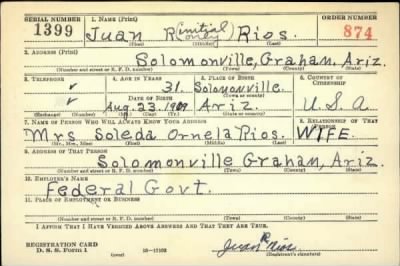 SERIAL NUMBER 1. NAME (Print) ORDER NUMBER
1399 Juan R (initial only) Rios. 874
(First) (Middle) (Last)
2. ADDRESS (Print)
Solomonville, Graham, Ariz.
(Number and street or R. F. D. number) (Town) (County) (State)
3. TELEPHONE 4. AGE IN YEARS 5. PLACE OF BIRTH 6. COUNTRY OF CITIZENSHIP
✓ 31. Solomonville.
DATE OF BIRTH (Town or county)
✓ Aug. 23. 1909 Ariz. U.S.A
(Exchange) (Number) (Mo.) (Day) (Yr.) (State or country)
7. NAME OF PERSON WHO WILL ALWAYS KNOW YOUR ADDRESS 8. RELATIONSHIP OF THAT PERSON
Mrs Soleda Ornela Rios. WIFE.
(Mr., Mrs., Miss) (First) (Middle) (Last)
9. ADDRESS OF THAT PERSON
Solomonville Graham, Ariz.
(Number and street or R. F. D. number) (Town) (County) (State)
10. EMPLOYER'S NAME
Federal Govt.
11. PLACE OF EMPLOYMENT OR BUSINESS
(Number and street or R. F. D. number) (Town) (County) (State)
I AFFIRM THAT I HAVE VERIFIED ABOVE ANSWERS AND THAT THEY ARE TRUE.
REGISTRATION CARD
D. S. S. Form 1 Juan R Rios.
(Registrant's signature)